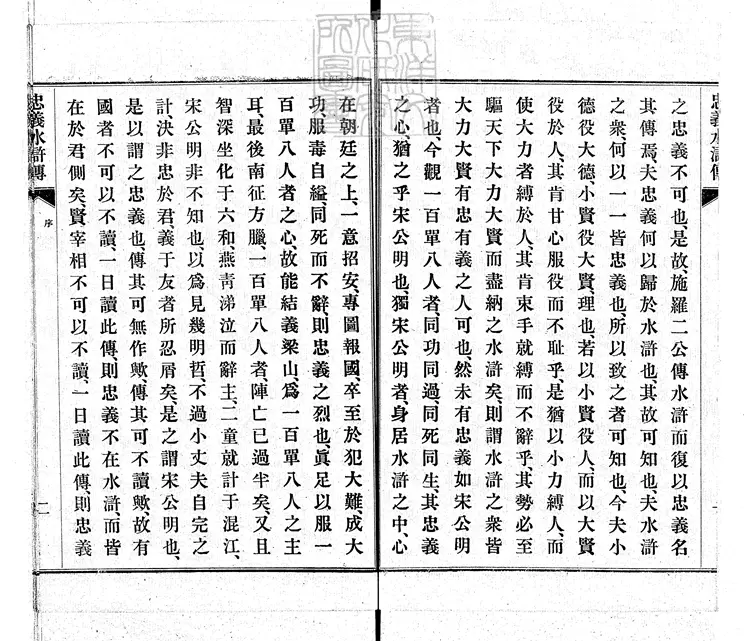 忠義水滸傳
之忠義不可也、是故、施羅二公傳水滸而復以忠義名
其傳焉、夫忠義何以歸於水滸也、其故可知也、夫水滸
之衆何以一一皆忠義也、所以致之者可知也、今夫小
德役大德、小賢役大賢、理也、若以小賢役人、而以大賢
役於人、其肯甘心服役而不耻乎、是猶以小力縛人、而
使大力者縛於人、其肯束手就縛而不辭乎、其勢必至
驅天下大力大賢而盡納之水滸矣、則謂水滸之衆皆
大力大賢有忠有義之人可也、然未有忠義如宋公明
者也、今觀一百單八人者、同功同過、同死同生、其忠義
之心、猶之乎宋公明也、獨宋公明者、身居水滸之中、心
在朝廷之上、一意招安、專圖報國、卒至於犯大難、成大
功、服毒自縊、同死而不辭、則忠義之烈也、眞足以服一
百單八人者之心、故能結義梁山、爲一百單八人之主
耳、最後南征方臘、一百單八人者、陣亡已過半矣、又且
智深坐化于六和、燕靑涕泣而辭主、二童就計于混江、
宋公明非不知也、以爲見幾明哲、不過小丈夫自完之
計、決非忠於君、義于友者所忍屑矣、是之謂宋公明也、
是以謂之忠義也、傳其可無作歟、傳其可不讀歟、故有
國者不可以不讀、一日讀此傳、則忠義不在水滸、而皆
在於君側矣、賢宰相不可以不讀、一日讀此傳、則忠義
忠義水滸傳
序
二